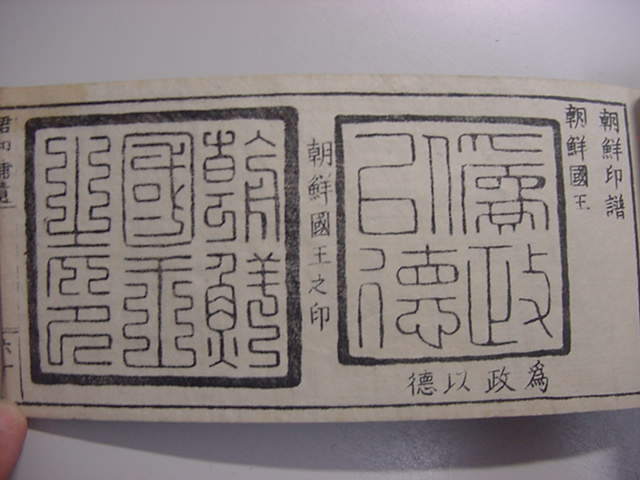 朝鮮印譜
朝鮮國王
爲政
以德
爲政以德
朝鮮國王之印
朝鮮
國王
之印